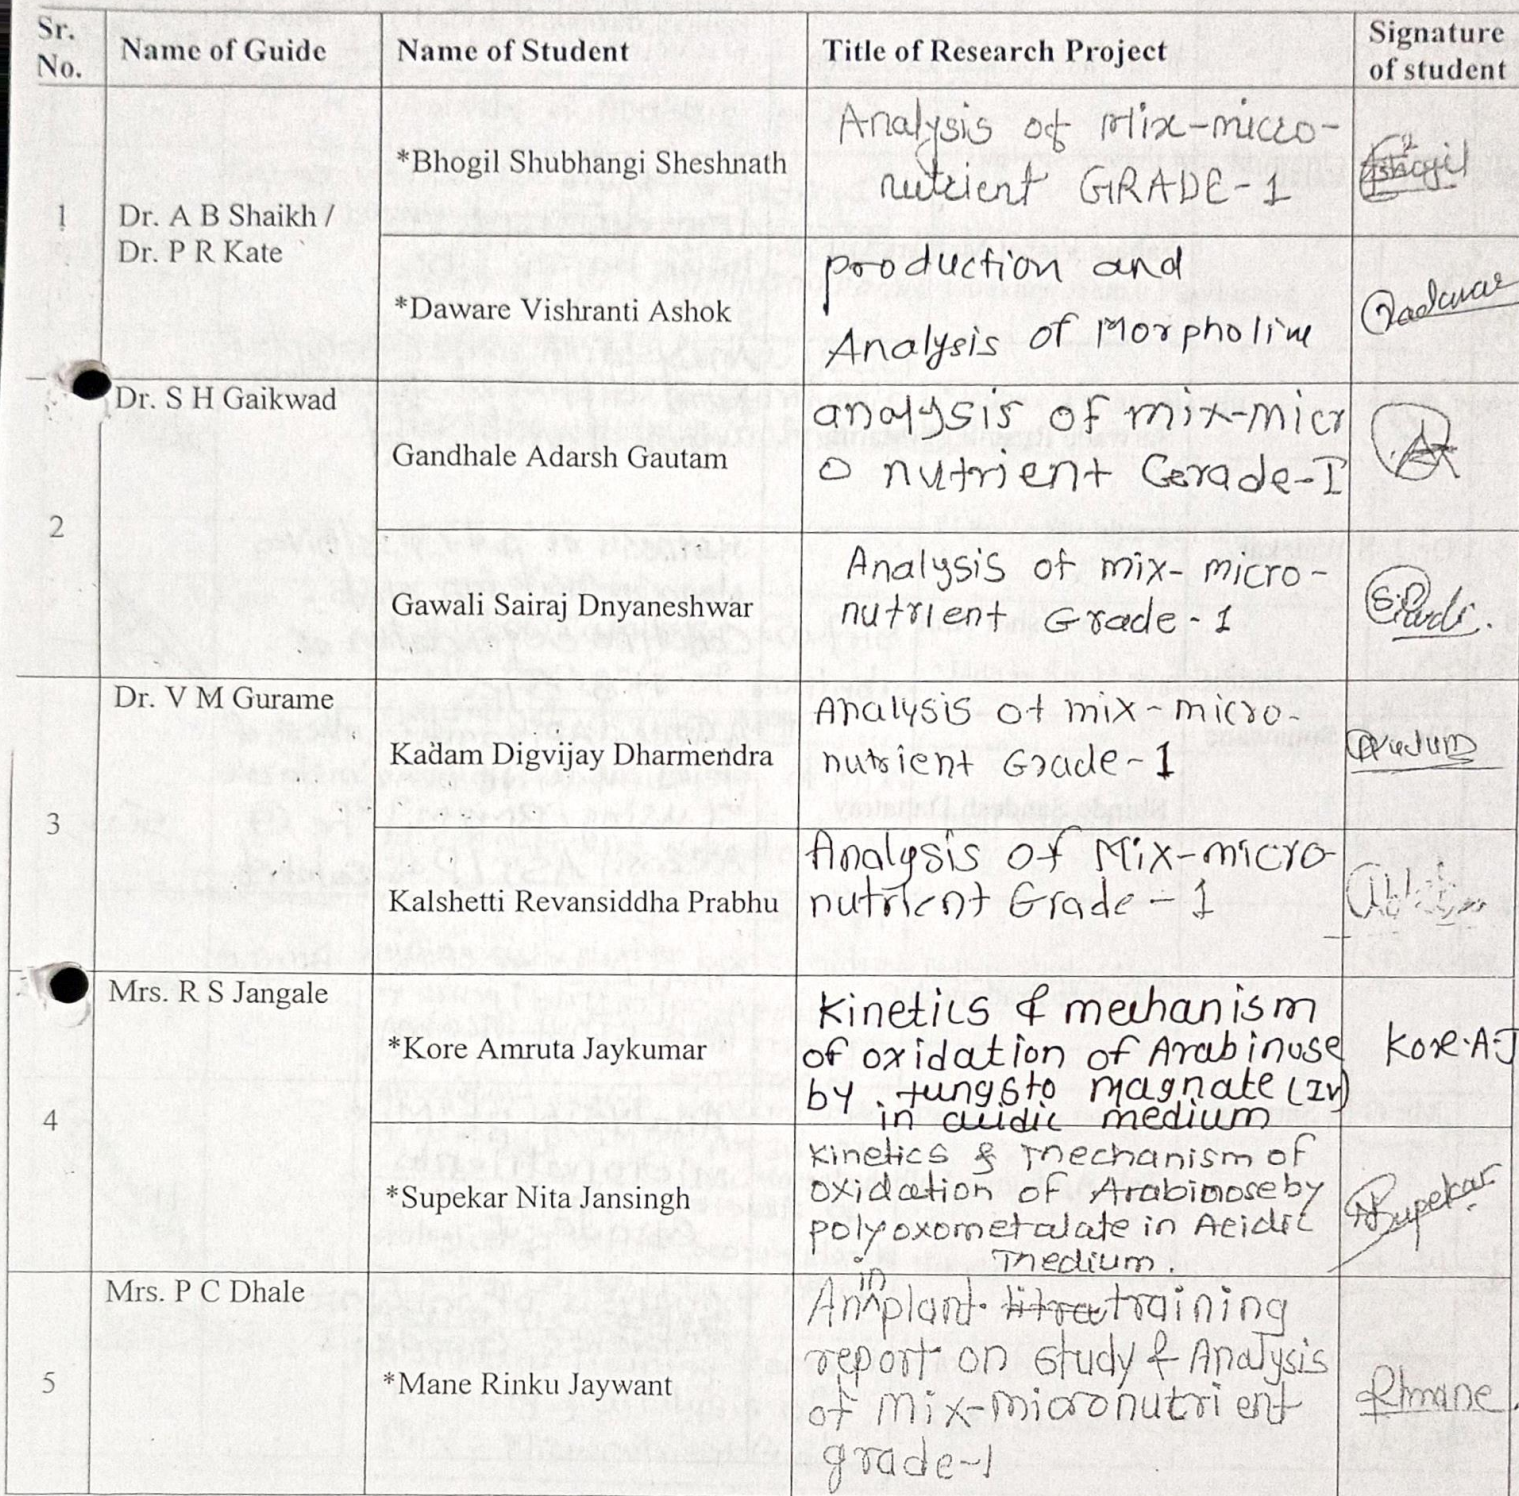 Sr. No. Name of Guide Name of Student Title of Research Project Signature of student
1 Dr. A B Shaikh /
Dr. P R Kate
*Bhogil Shubhangi Sheshnath
Analysis of Mix-micro-
nutrient GRADE-1
*Daware Vishranti Ashok
production and
Analysis of Morpholine
2 Dr. S H Gaikwad
Gandhale Adarsh Gautam
analysis of mix-micr
o nutrient Gerade-I
Gawali Sairaj Dnyaneshwar
Analysis of mix-micro-
nutrient Grade-1
3 Dr. V M Gurame
Kadam Digvijay Dharmendra
Analysis of mix-micro-
nutrient Grade-1
Kalshetti Revansiddha Prabhu
Analysis of Mix-micro
nutrient Grade-1
4 Mrs. R S Jangale
*Kore Amruta Jaykumar
kinetics & mechanism
of oxidation of Arabinose
by tungsto magnate (IV)
in acidic medium
Kore.A.J
*Supekar Nita Jansingh
kinetics & mechanism of
oxidation of Arabinose by
polyoxometalate in Acidic
medium.
Supekar
5 Mrs. P C Dhale
*Mane Rinku Jaywant
An in plant training
report on study & Analysis
of mix-micronutrient
grade-1